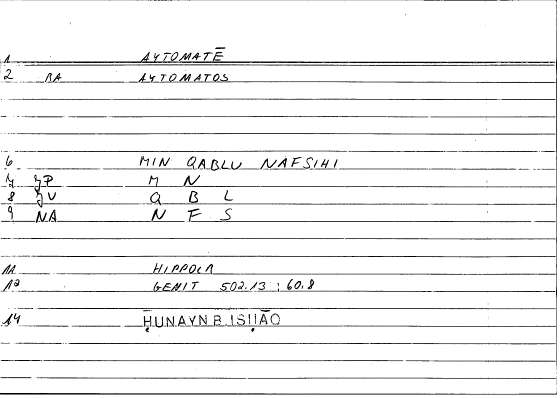 1 AYTOMATĒ
2 AA AYTOMATOS
6 MIN QABLU NAFSIHI
7 JP M N
8 JV Q B L
9 NA N F S
11 HIPPOCR
12 GENIT 502.13 : 60.8
14 ḤUNAYN B. ISḤĀQ